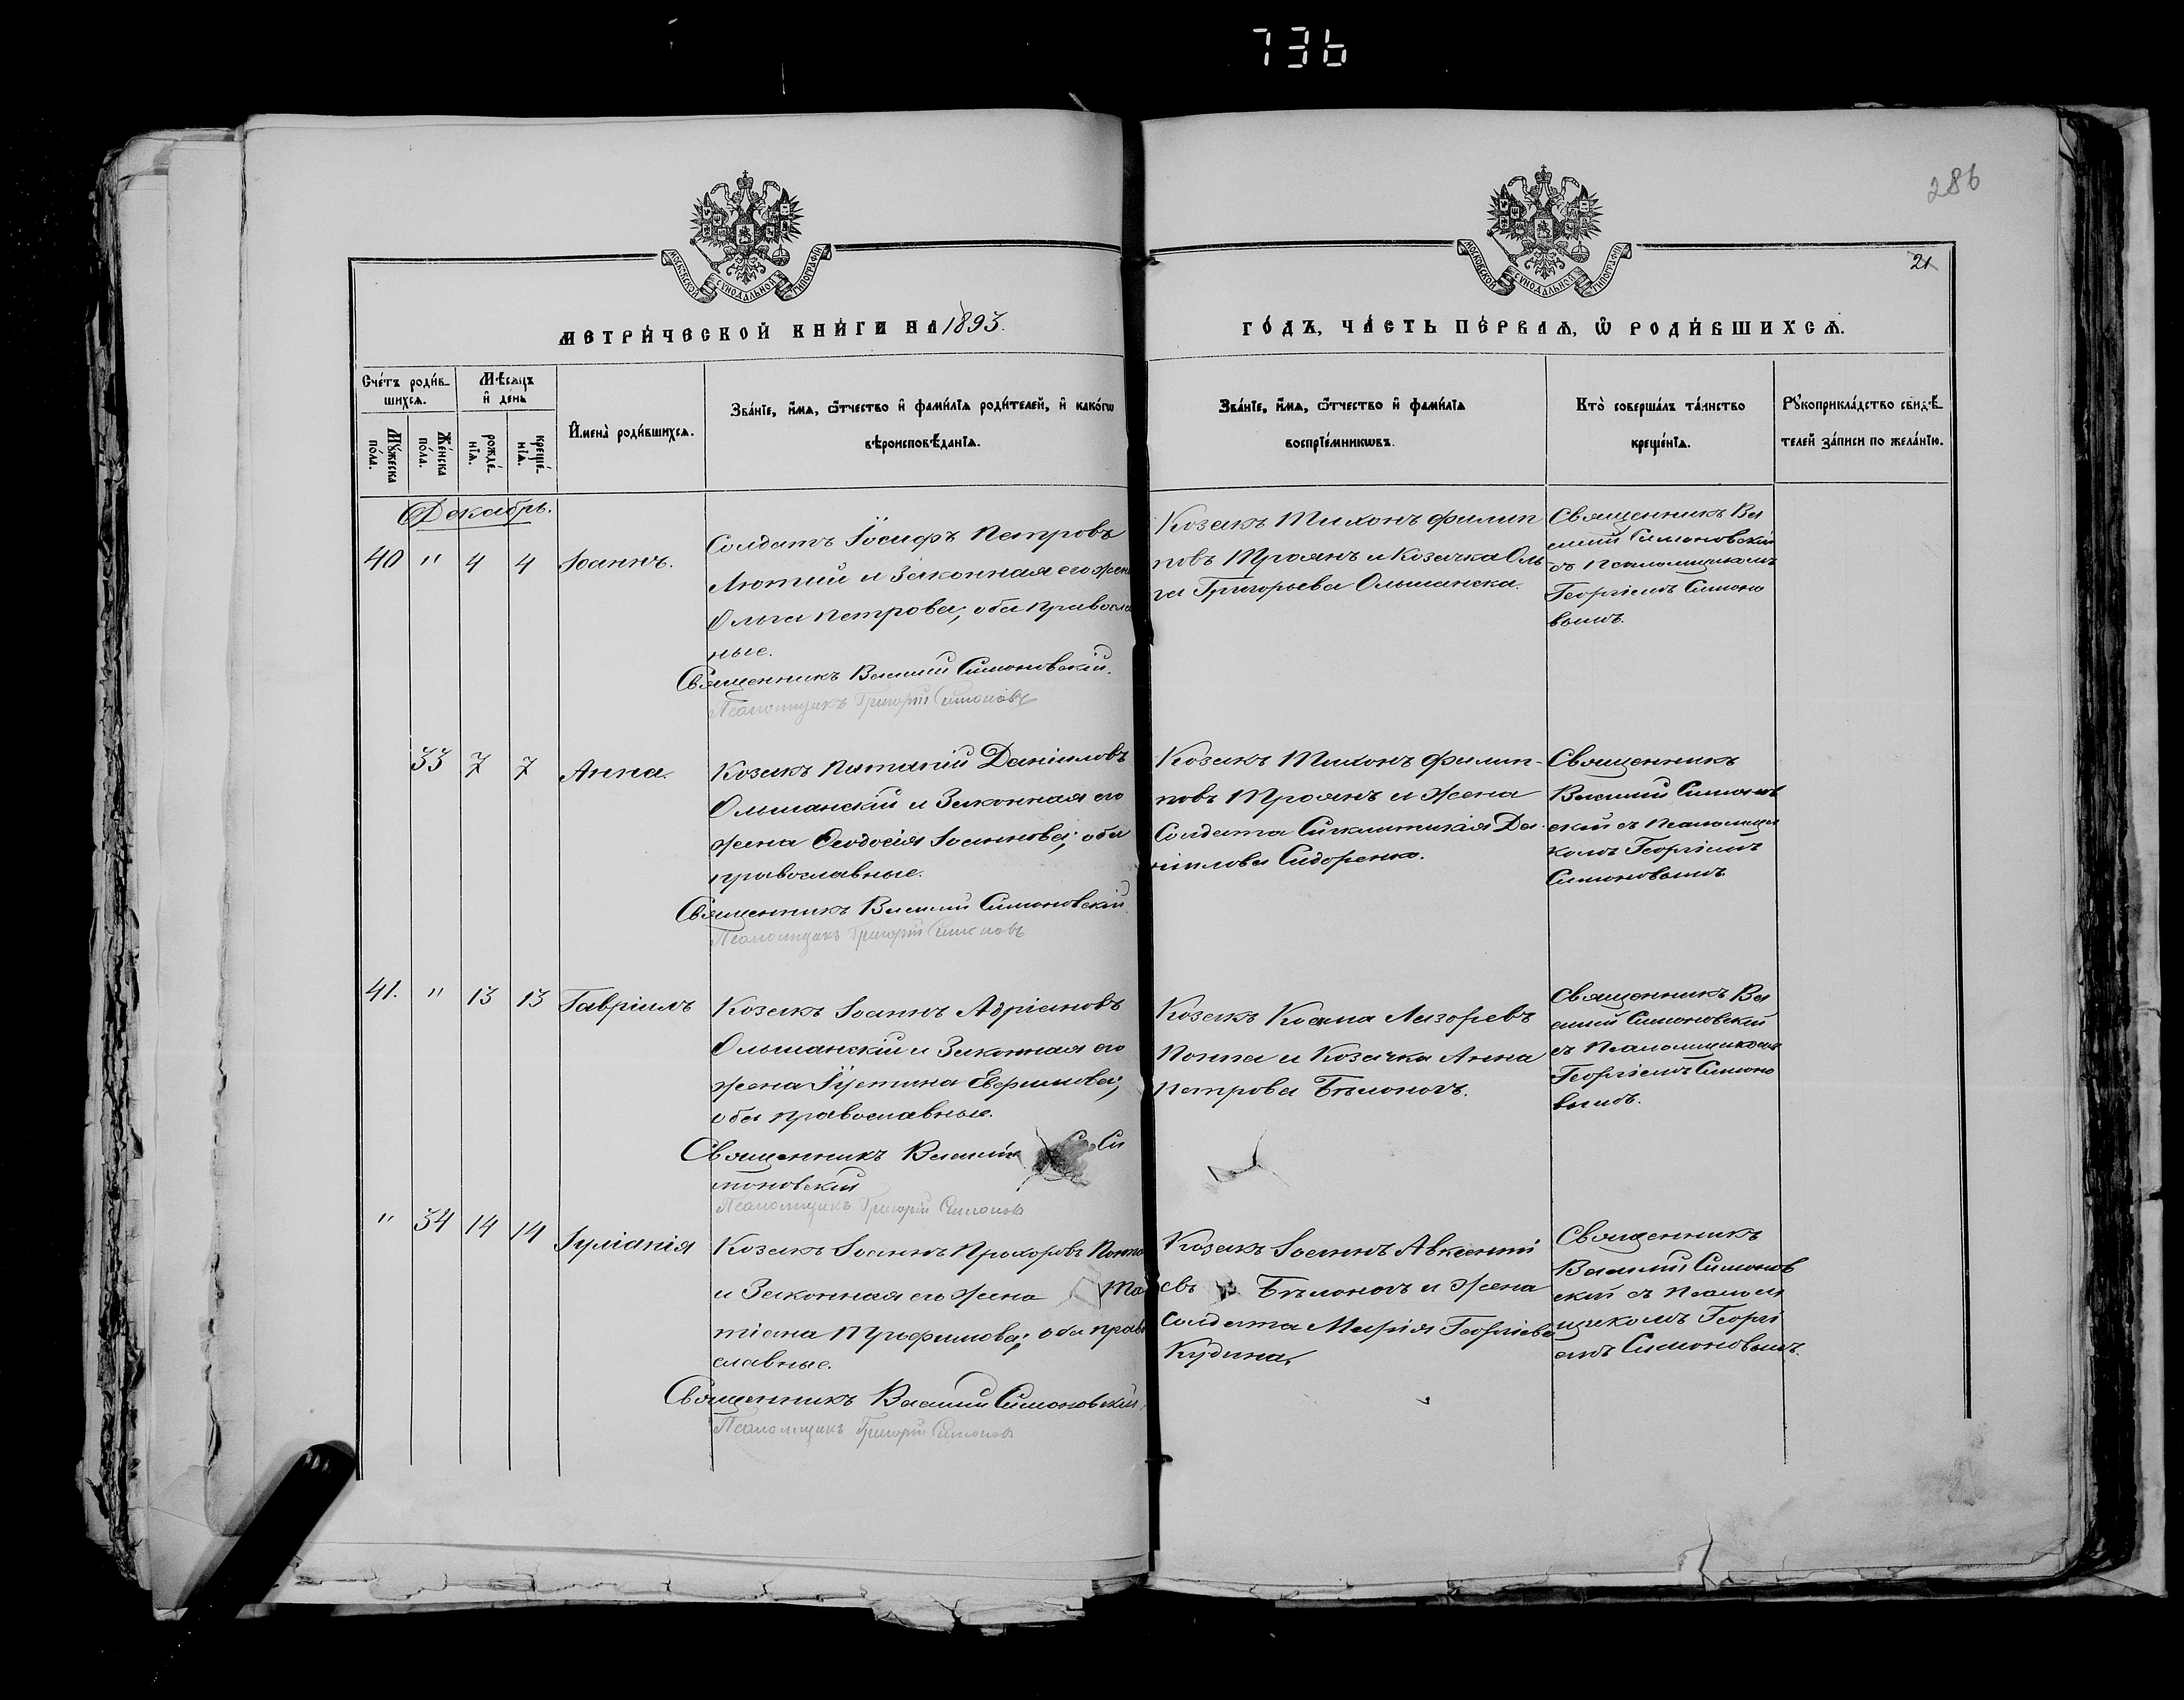 736
286
21
МОСКОВСКОЙ СѴНОДАЛЬНОЙ ТИПОГРАФИИ
МОСКОВСКОЙ СѴНОДАЛЬНОЙ ТИПОГРАФИИ
МЕТРИ́ЧЕСКОЙ КНИ́ГИ НА 1893.
ГО́ДЪ, ЧА́СТЬ ПЕ́РВАѦ, Ѡ҆ РОДИ́ВШИХСѦ.
Сче́тъ роди́в-
шихсѧ.
Мѣ́сѧцъ
и҆ де́нь
Мꙋ́жеска
по́ла.
Же́нска
по́ла.
рожде́-
нїѧ.
креще́-
нїѧ.
И҆мена̀ роди́вшихсѧ.
Зва́нїе, и҆́мѧ, ѻ҆́тчество и҆ фами́лїѧ роди́телей, и҆ како́гѡ
вѣроисповѣ́данїѧ.
Зва́нїе, и҆́мѧ, ѻ҆́тчество и҆ фами́лїѧ
воспрїе́мникѡвъ.
Кто̀ соверша́лъ та́инство
креще́нїѧ.
Рꙋкоприкла́дство свидѣ́-
телей за́писи по жела́нїю.
Декабрь.
40 " 4 4 Іоаннъ.
Солдатъ Іосифъ Петровъ
Лютий и Законная его жена
Ольга Петрова, оба православ
ные.
Священникъ Василій Симоновскій.
Псаломщикъ Григорій Симоновъ
Козакъ Тихонъ Филип
повъ Троянъ и Козачка Оль
га Григорьева Ольшанска.
Священникъ Ва
силій Симоновскій
съ Псаломщикомъ
Георгіемъ Симоно
вымъ.
33 7 7 Анна.
Козакъ Потапій Даніиловъ
Ольшанскій и Законная его
жена Ѳеодосія Іоаннова; оба
православные.
Священникъ Василій Симоновскій.
Псаломщикъ Григорій Симоновъ
Козакъ Тихонъ Филип-
повъ Троянъ и жена
Солдата Синклитикія Да-
ніилова Сидоренко.
Священникъ
Василій Симонов
скій съ Псаломщи
комъ Георгіемъ
Симоновымъ
41. " 13 13 Гавріилъ
Козакъ Іоаннъ Адріановъ
Ольшанскій и Законная его
жена Іустина Евфимова;
оба православные.
Священникъ Василій Си
моновскій
Псаломщикъ Григорій Симоновъ
Козакъ Косма Лазоревъ
Попна и Козачка Анна
Петрова Бѣлоногъ.
Священникъ Ва
силій Симоновскій
съ Псаломщикомъ
Георгіемъ Симоно
вымъ.
" 34 14 14 Іуліанія
Козакъ Іоаннъ Прохоровъ
и Законная его жена Та
тіана Трофимова; оба право
славные.
Священникъ Василій Симоновскій.
Псаломщикъ Григорій Симоновъ
Козакъ Іоаннъ Авксентій
евъ Бѣлоногъ и жена
Солдата Марія Георгіева
Кудина.
Священникъ
Василій Симонов
скій съ Псалом
щикомъ Георгі
емъ Симоновымъ.